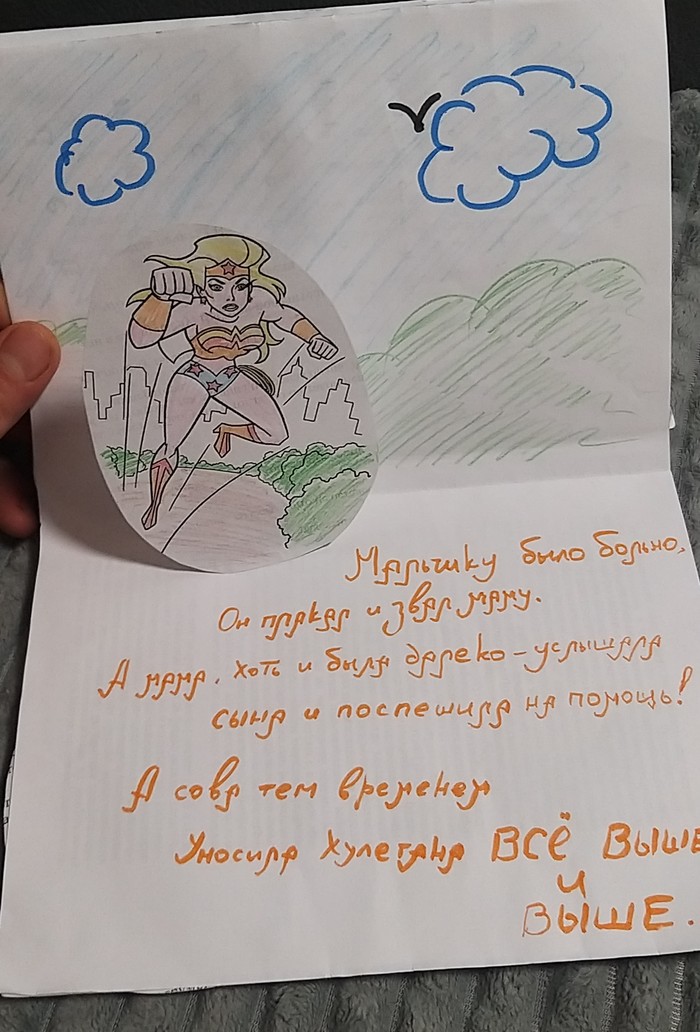 Мальчику было больно,
Он плакал и звал маму.
А мама, хоть и была далеко - услышала
сына и поспешила на помощь!
А сова тем временем
Уносила Хулетана ВСЁ ВЫШЕ
И
ВЫШЕ.